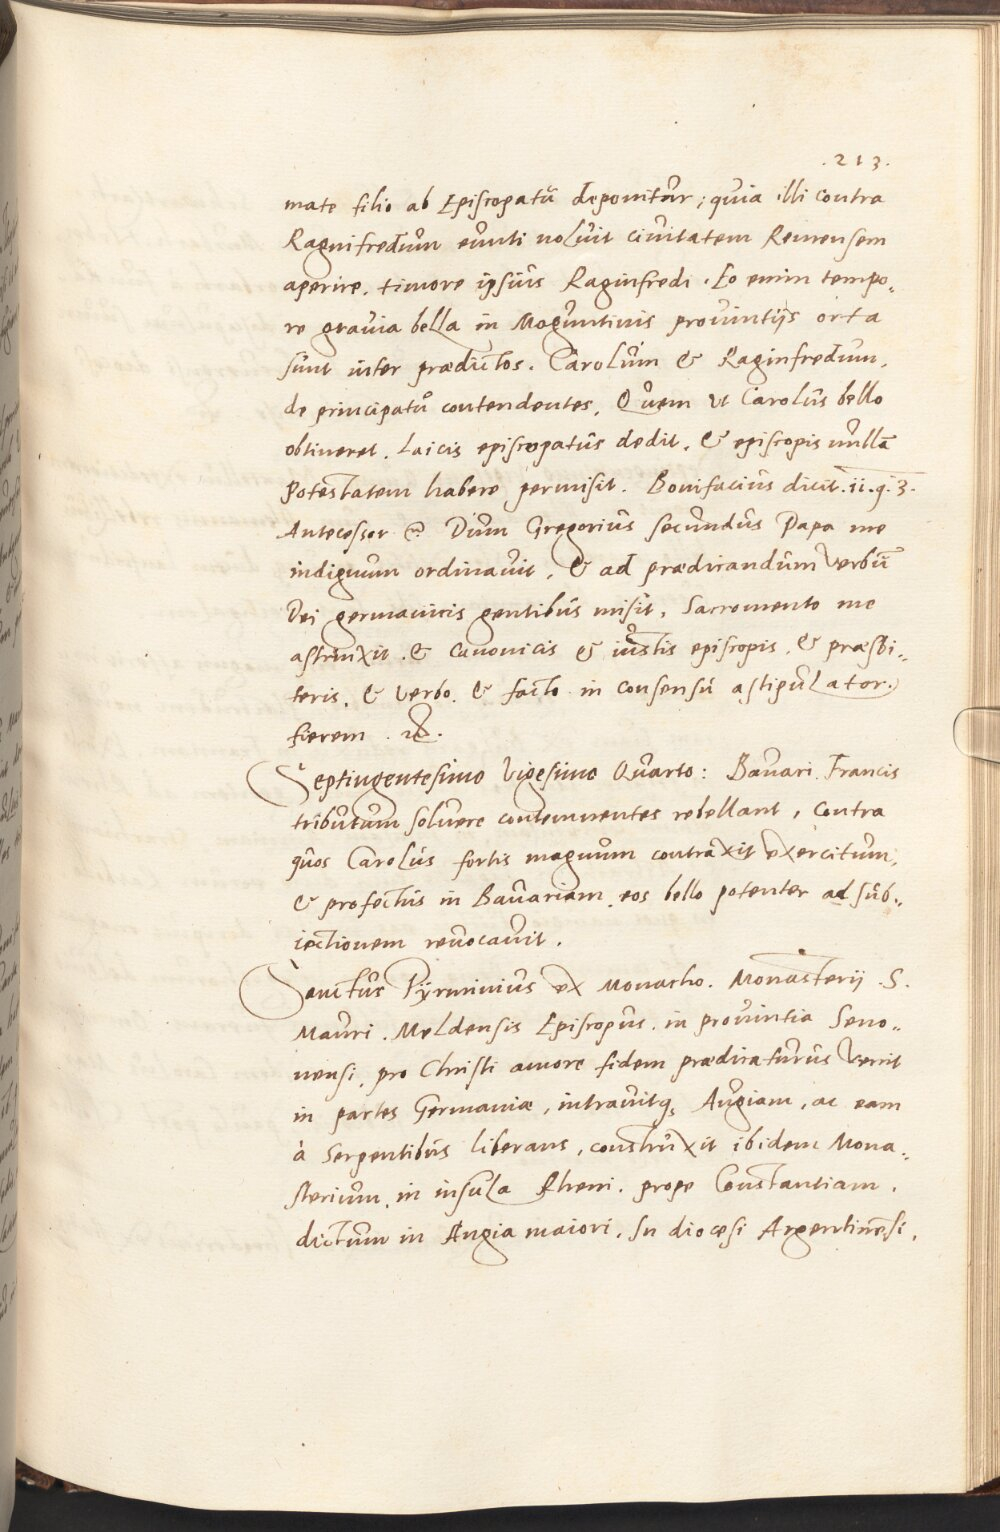 .213.
mate filio ab Episcopatū deponitur; quia illi contra
Raginfredum eunti noluit ciuitatem Remensem
aperire, timore ipsius Raginfredi. Eo enim tempo„
re grauia bella in Maguntinis prouintijs orta
sunt inter prædictos. Carolum & Raginfredum,
de principatu contendentes, Quem ut Carolus bello
obtineret, Laicis episcopatus dedit, & episcopis nullā
Potestatem habere permisit. Bonifacius dicit. ii. q. 3.
Antecessor Dum Gregorius secundus Papa me
indignum ordinauit, & ad prædicandum Verbū
Dei germanicis gentibus misit, Sacromento me
astrinxit, & Canonicis & iustis episcopis, & præsbi„
teris, & verbo, & facto in consensu astipulator.
fierem. &.
Septingentesimo Vigesimo Quarto: Bauari Francis
tributum soluere contemnentes rebellant, contra
quos Carolus fortis magnum contraxit exercitum,
& profectus in Bauariam, eos bello potenter ad sub„
iectionem reuocauit.
Sanctus Pyrminius ex Monacho. Monasterij .S.
Mauri. Meldensis Episcopus. in prouintia Seno„
nensi, pro Christi amore fidem prædicaturus Venit
in partes Germaniæ, intrauitq; Augiam, ac eam
à Serpentibus liberans, construxit ibidem Mona„
sterium, in insula Rheni. prope Constantiam,
dictum in Augia maiori. In diocesi Argentinēsi,